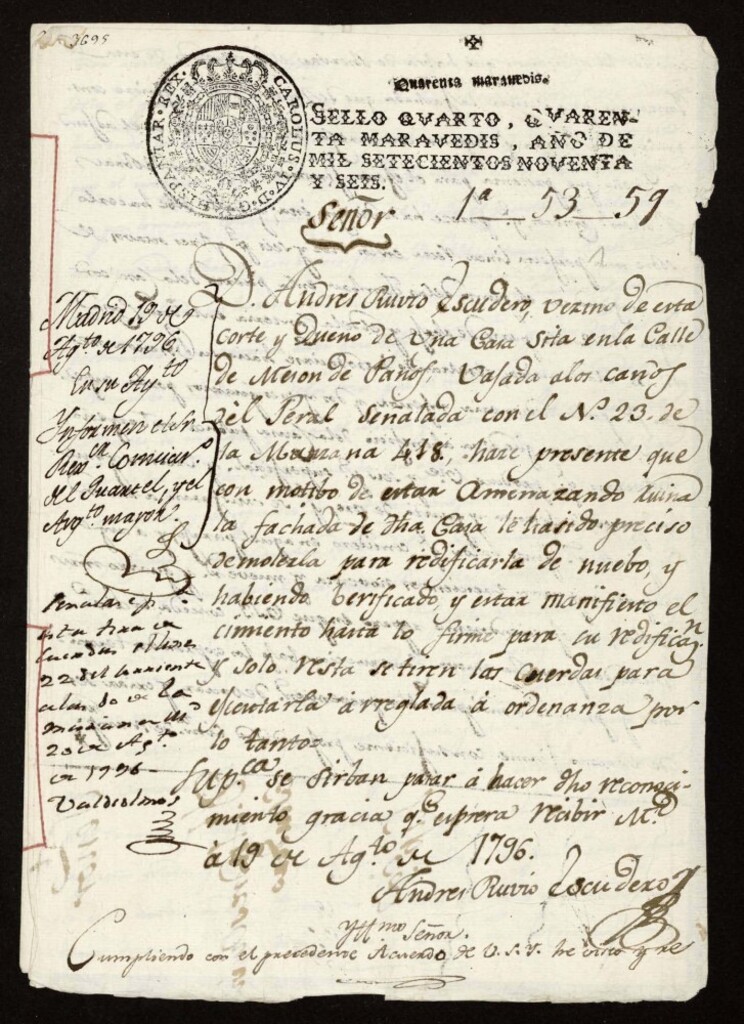 3695
Quarenta maravedis.
SELLO QVARTO, QVAREN-
TA MARAVEDIS, AÑO DE
MIL SETECIENTOS NOVENTA
Y SEIS.
CAROLUS. IV. D. G. HISPANIAR. REX.
Señor
1ª 53 59
D. Andres Ruvio Escudero, vezino de esta
corte y Dueño de Una Casa sita en la Calle
de Meson de Paños, Vajada a los caños
del Peral señalada con el Nº 23. de
la Manzana 418. haze presente que
con motibo de estar Amenazando ruina
la fachada de dha Casa le ha sido preciso
demolerla para redificarla de nuebo, y
habiendo berificado, y estar manifiesto el
cimiento hasta lo firme para su redificaⁿ.
y solo resta se tiren las Cuerdas para
ejecutarla arreglada à ordenanza por
lo tanto=
Supca. se sirban pasar á hacer dho reconoci-
miento gracia q.e espera recibir M.d
à 19 de Agto. de 1796.
Andres Ruvio Escudero
Madrid 19 de
Agto de 1796.
En su Ayto
Informen el Sr
Rexor Comisar.o
del Quartel, y el
Arqto mayor.
esta tira de
cuerdas el lunes
22 del corriente
a las 10 de la
mañana
20 de Agto.
de 1796
Valdeolmos
Yllmo Señor.
Cumpliendo con el precedente Acuerdo de V.S.Y. he visto y re